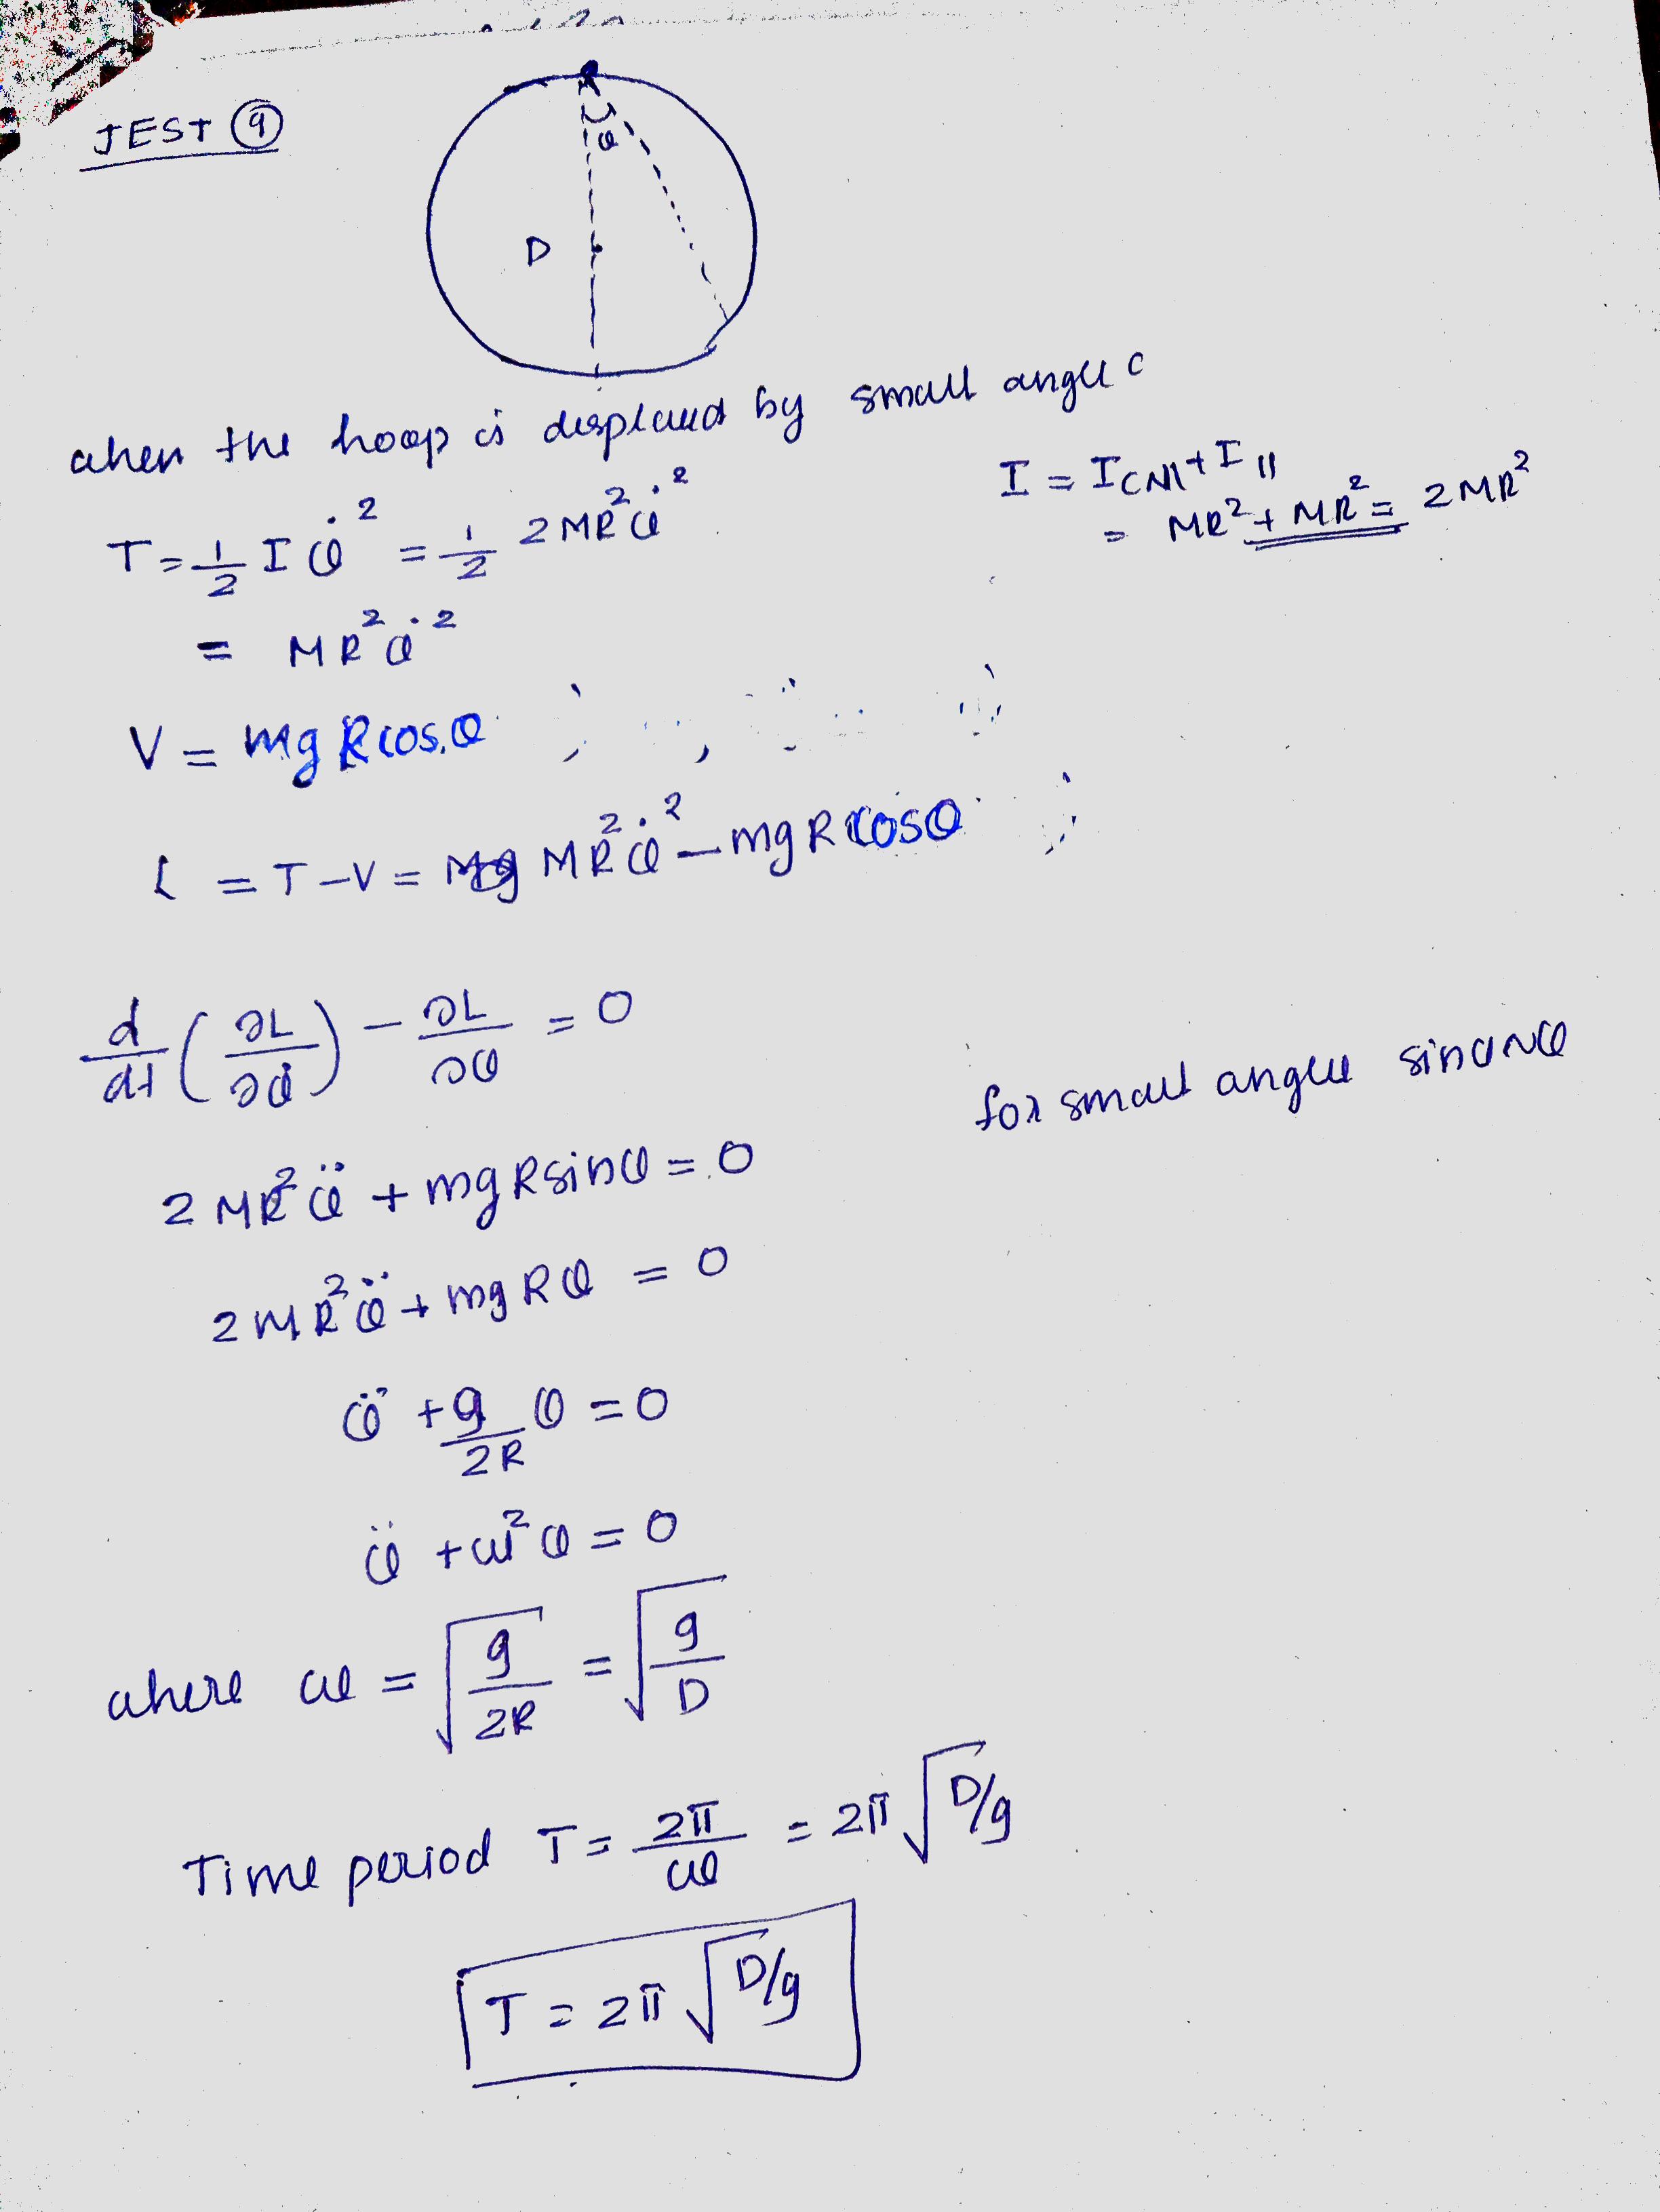 JEST ⑨
θ
D
when the hoop is displaced by small angle
I = I_CM + I_11
= MR² + MR² = 2MR²
T = 1/2 I θ̇² = 1/2 2MR²θ̇²
= MR²θ̇²
V = mgRcosθ
L = T-V = MR²θ̇² - mgRcosθ
d/dt (∂L/∂θ̇) - ∂L/∂θ = 0
for small angle sinθ~θ
2MR²θ̈ + mgRsinθ = 0
2MR²θ̈ + mgRθ = 0
θ̈ + g/2R θ = 0
θ̈ + ω²θ = 0
where ω = √(g/2R) = √(g/D)
Time period T = 2π/ω = 2π√(D/g)
T = 2π√(D/g)